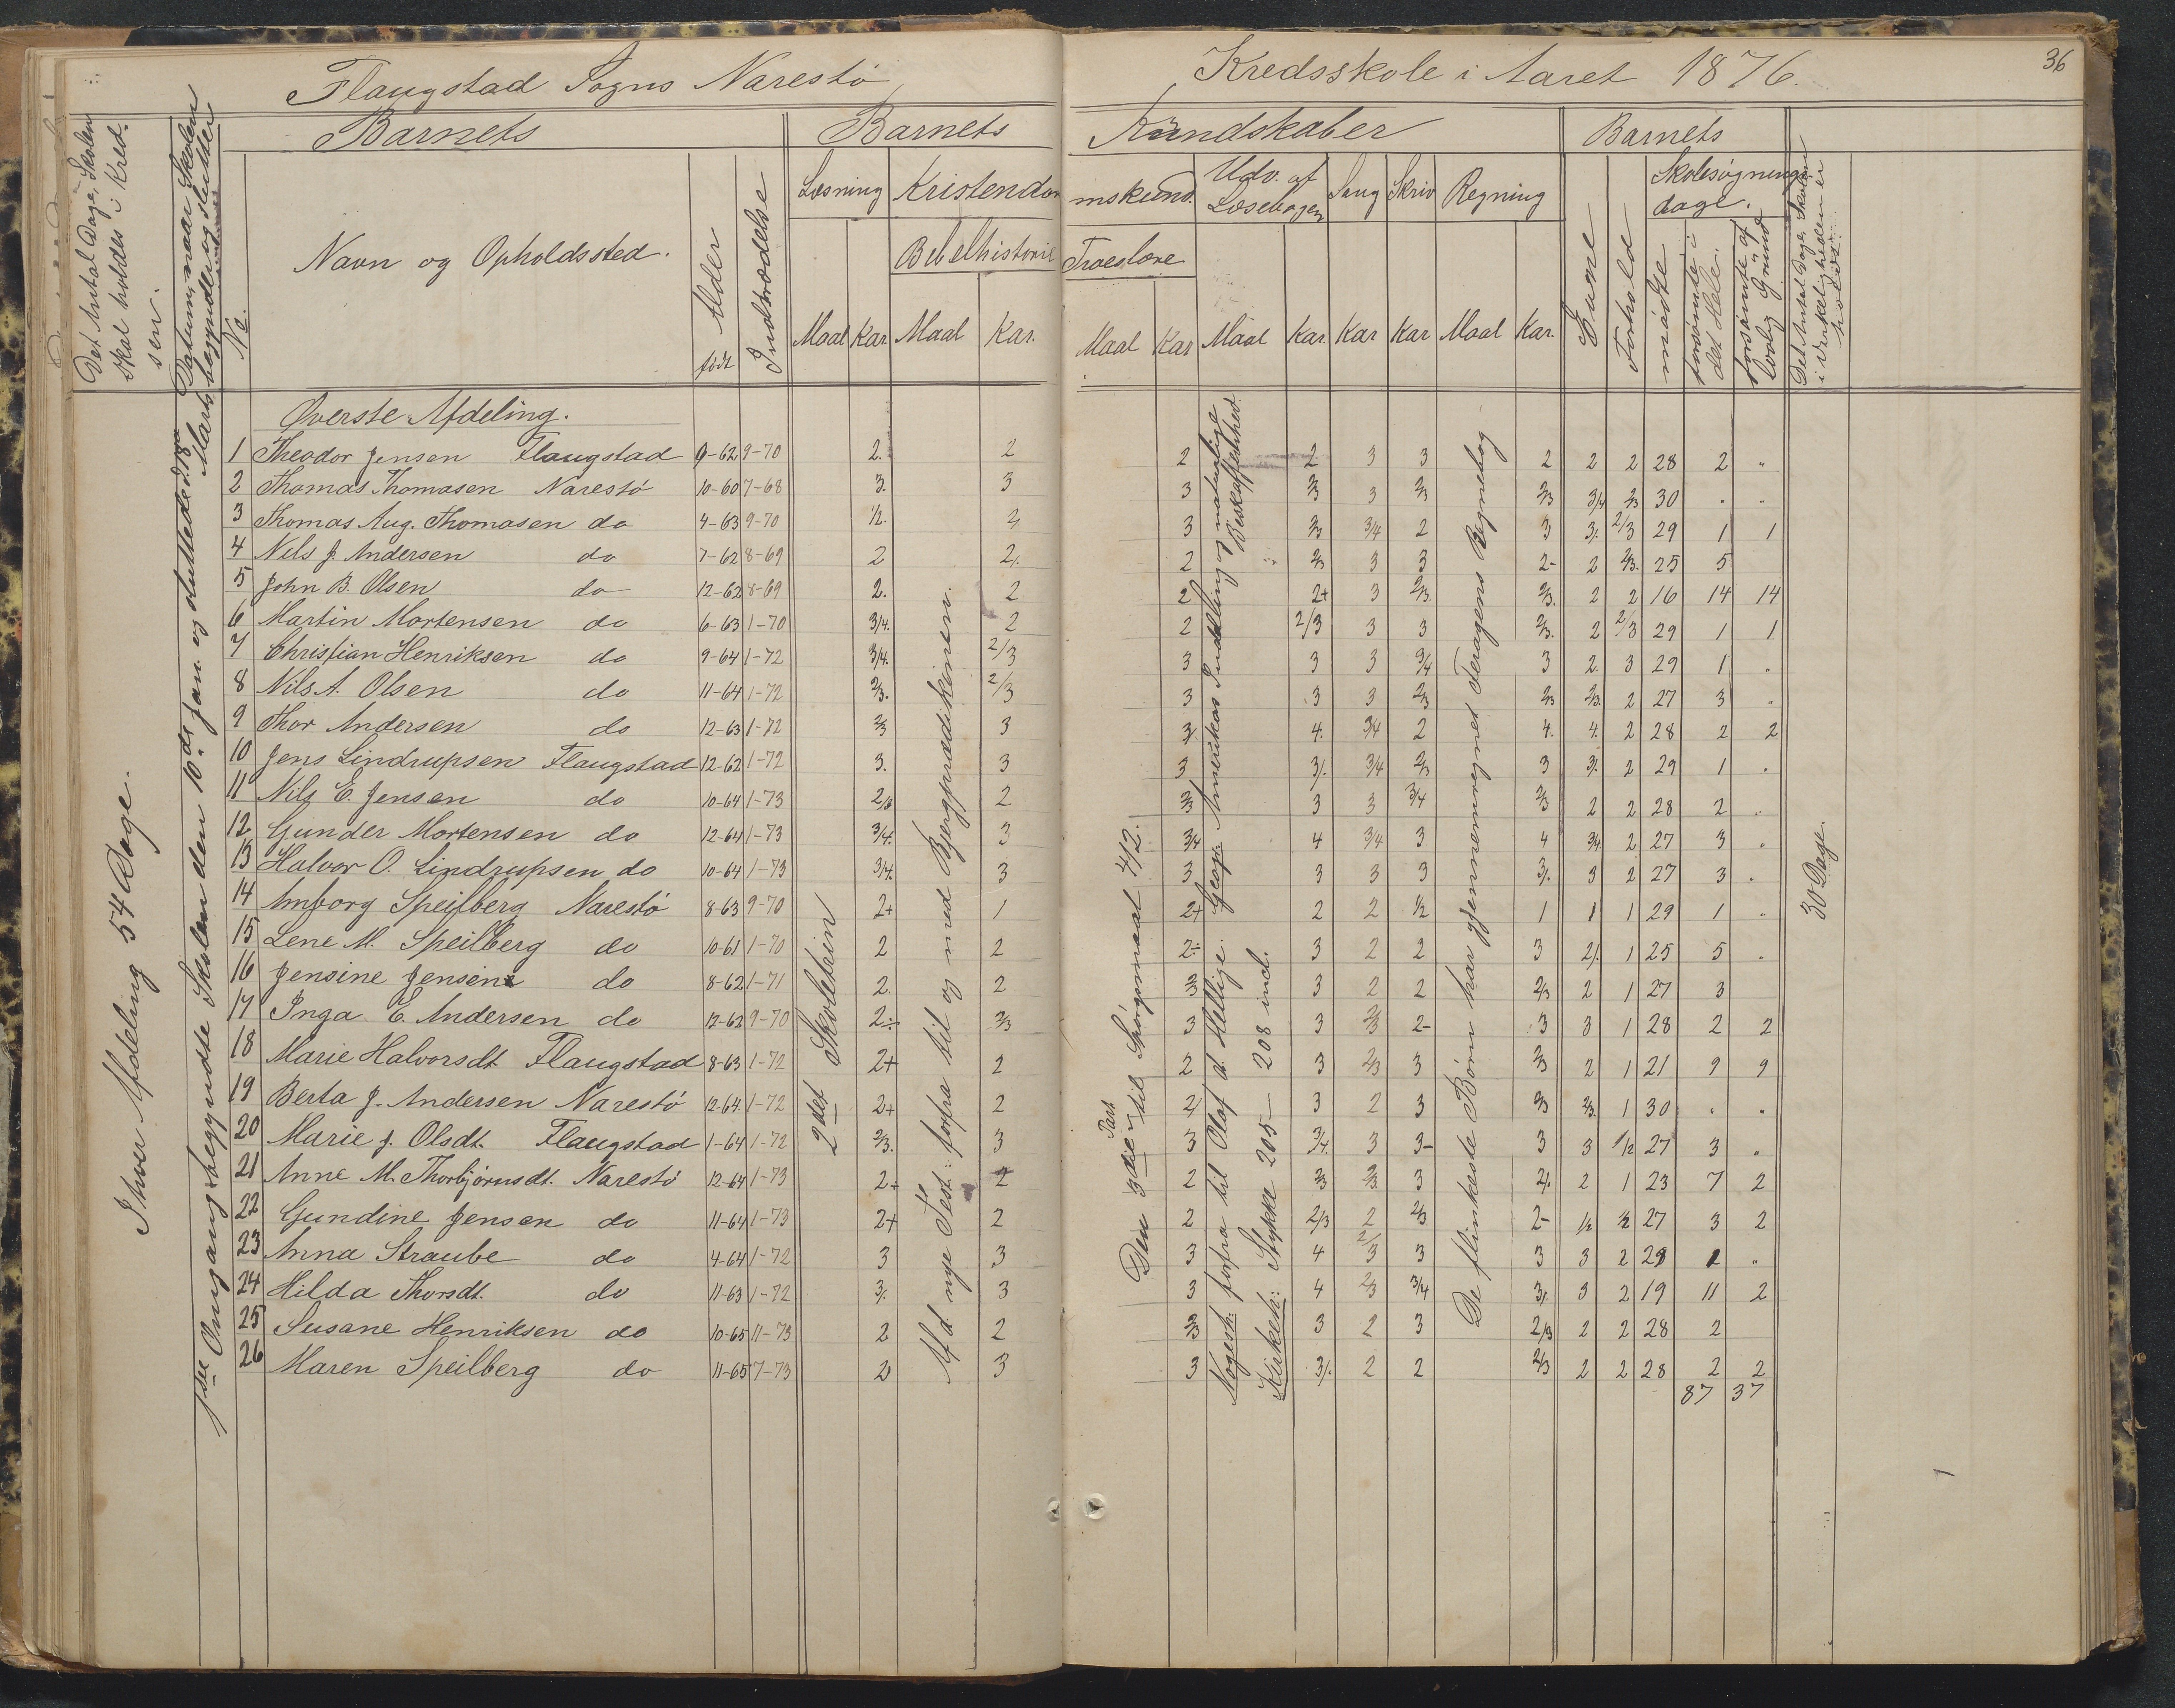 Flaugstad Sogns Narestö Kredsskole i Aaret 1876. 36
Det Antal Dage, Skolen skal holdes i Kredsen.
Datum, naar Skolen begynder og slutter
No.
Barnets
Navn og Opholdssted.
Alder
født
Indtrædelse
Barnets Kundskaber
Læsning
Maal Kar.
Kristendomskund.
Bibelhistorie
Maal Kar.
Troeslære
Maal Kar
Udv. af Læsebogen
Maal Kar.
Sang
Kar
Skriv
Kar
Regning
Maal Kar.
Barnets
Evne
Forhold
Skolesøgningsdage.
mødte
forsømte i det Hele.
forsømte af lovlig Grund
Det Antal Dage, Skolen i Virkeligheden er holdt.
I hver Afdeling 54 Dage.
1ste Omgang begyndte Skolen den 10de Jan. og sluttede d. 18 Marts
Øverste Afdeling.
1 Theodor Jensen Flaugstad 9-62 9-70 2. 2 2 2 3 3 2 2 2 28 2 "
2 Thomas Thomasen Narestö 10-60 7-68 3. 3 3 2/3 3 2/3 2/3 3/4 2/3 30 " "
3 Thomas Aug. Thomasen do 4-63 9-70 1/2. 2/ 3 2/3 3/4 2 3 3/. 2/3 29 1 1
4 Nils J. Andersen do 7-62 8-69 2 2/. 2 2/3 3 3 2- 2 2/3. 25 5
5 John B. Olsen do 12-62 8-69 2. 2 2 2+ 3 2/3. 2/3. 2 2 16 14 14
6 Martin Mortensen do 6-63 1-70 3/4. 2 2 2/3 3 3 2/3. 2 2/3 29 1 1
7 Christian Henriksen do 9-64 1-72 3/4. 2/3 3 3 3 3/4 3 2. 3 29 1 "
8 Nils A. Olsen do 11-64 1-72 2/3. 2/3 3 3 3 2/3 2/3 2/3. 2 27 3 "
9 Thor Andersen do 12-63 1-72 2/3 3 3/ 4. 3/4 2 4. 4. 2 28 2 2
10 Jens Lindrupsen Flaugstad 12-62 1-72 3. 3 3 3/. 3/4 2/3 3 3/. 2 29 1 "
11 Nils E. Jensen do 10-64 1-73 2/3 2 2/3 3 3 3/4 2/3 2 2 28 2 "
12 Gunder Mortensen do 12-64 1-73 3/4. 3 3/4 4 3/4 3 4 3/4 2 27 3 "
13 Halvor O. Lindrupsen do 10-64 1-73 3/4. 3 3 3 3 3 3/. 3 2 27 3 "
14 Amborg Speilberg Narestö 8-63 9-70 2+ 1 2+ 2 2 1/2 1 1 1 29 1 "
15 Lene M. Speilberg do 10-61 1-70 2 2 2÷ 3 2 2 3 2/. 1 25 5 "
16 Jensine Jensen do 8-62 1-71 2. 2 2/3 3 2 2 2/3 2 1 27 3
17 Inga E. Andersen do 12-62 9-70 2÷ 2/3 3 3 2/3 2- 3 3 1 28 2 2
18 Marie Halvorsdt. Flaugstad 8-63 1-72 2+ 2 2 3 2/3 3 2/3 2 1 21 9 9
19 Berta J. Andersen Narestö 12-64. 1-72 2+ 2 2/ 3 2 3 2/3 2/3. 1 30 " "
20 Marie J. Olsdt. Flaugstad 1-64 1-72 2/3. 3 3 3/4. 3 3- 3 3 1/2 27 3 "
21 Anne M. Thorbjörnsdt. Narestö 12-64 1-73 2+ 2 2 2/3 2/3. 3 2/. 2 1 23 7 2
22 Gundine Jensen do 11-64 1-73 2+ 2 2 2/3 2 2/3 2- 1/2 1/2 27 3 2
23 Anna Straube do 4-64 1-72 3 3 3 4 2/3 3 3 3 2 29 1 "
24 Hilda Thorsdt. do 11-63 1-72 3/. 3 3 4 2/3 3/4 3/. 3 2 19 11 2
25 Susane Henriksen do 10-65 11-73 2 2 2/3 3 2 3 2/3 2 2 28 2
26 Maren Speilberg do 11-65 7-73 2 3 3 3/. 2 2 2/3 2 2 28 2 2
87 37
2det Skoletrin
Af d. nye Test: forfra til og med Bjergprædikenen.
Den 3die Part til Spörgsmaal 42.
Geogr: Amerikas Inddeling og naturlige Beskaffenhed.
Norgesh: forfra til Olaf d. Hellige.
Kirkeh: Stykke 205 — 208 incl.
De flinkeste Børn har gjennemregnet Foragens Regnebog
30 Dage.